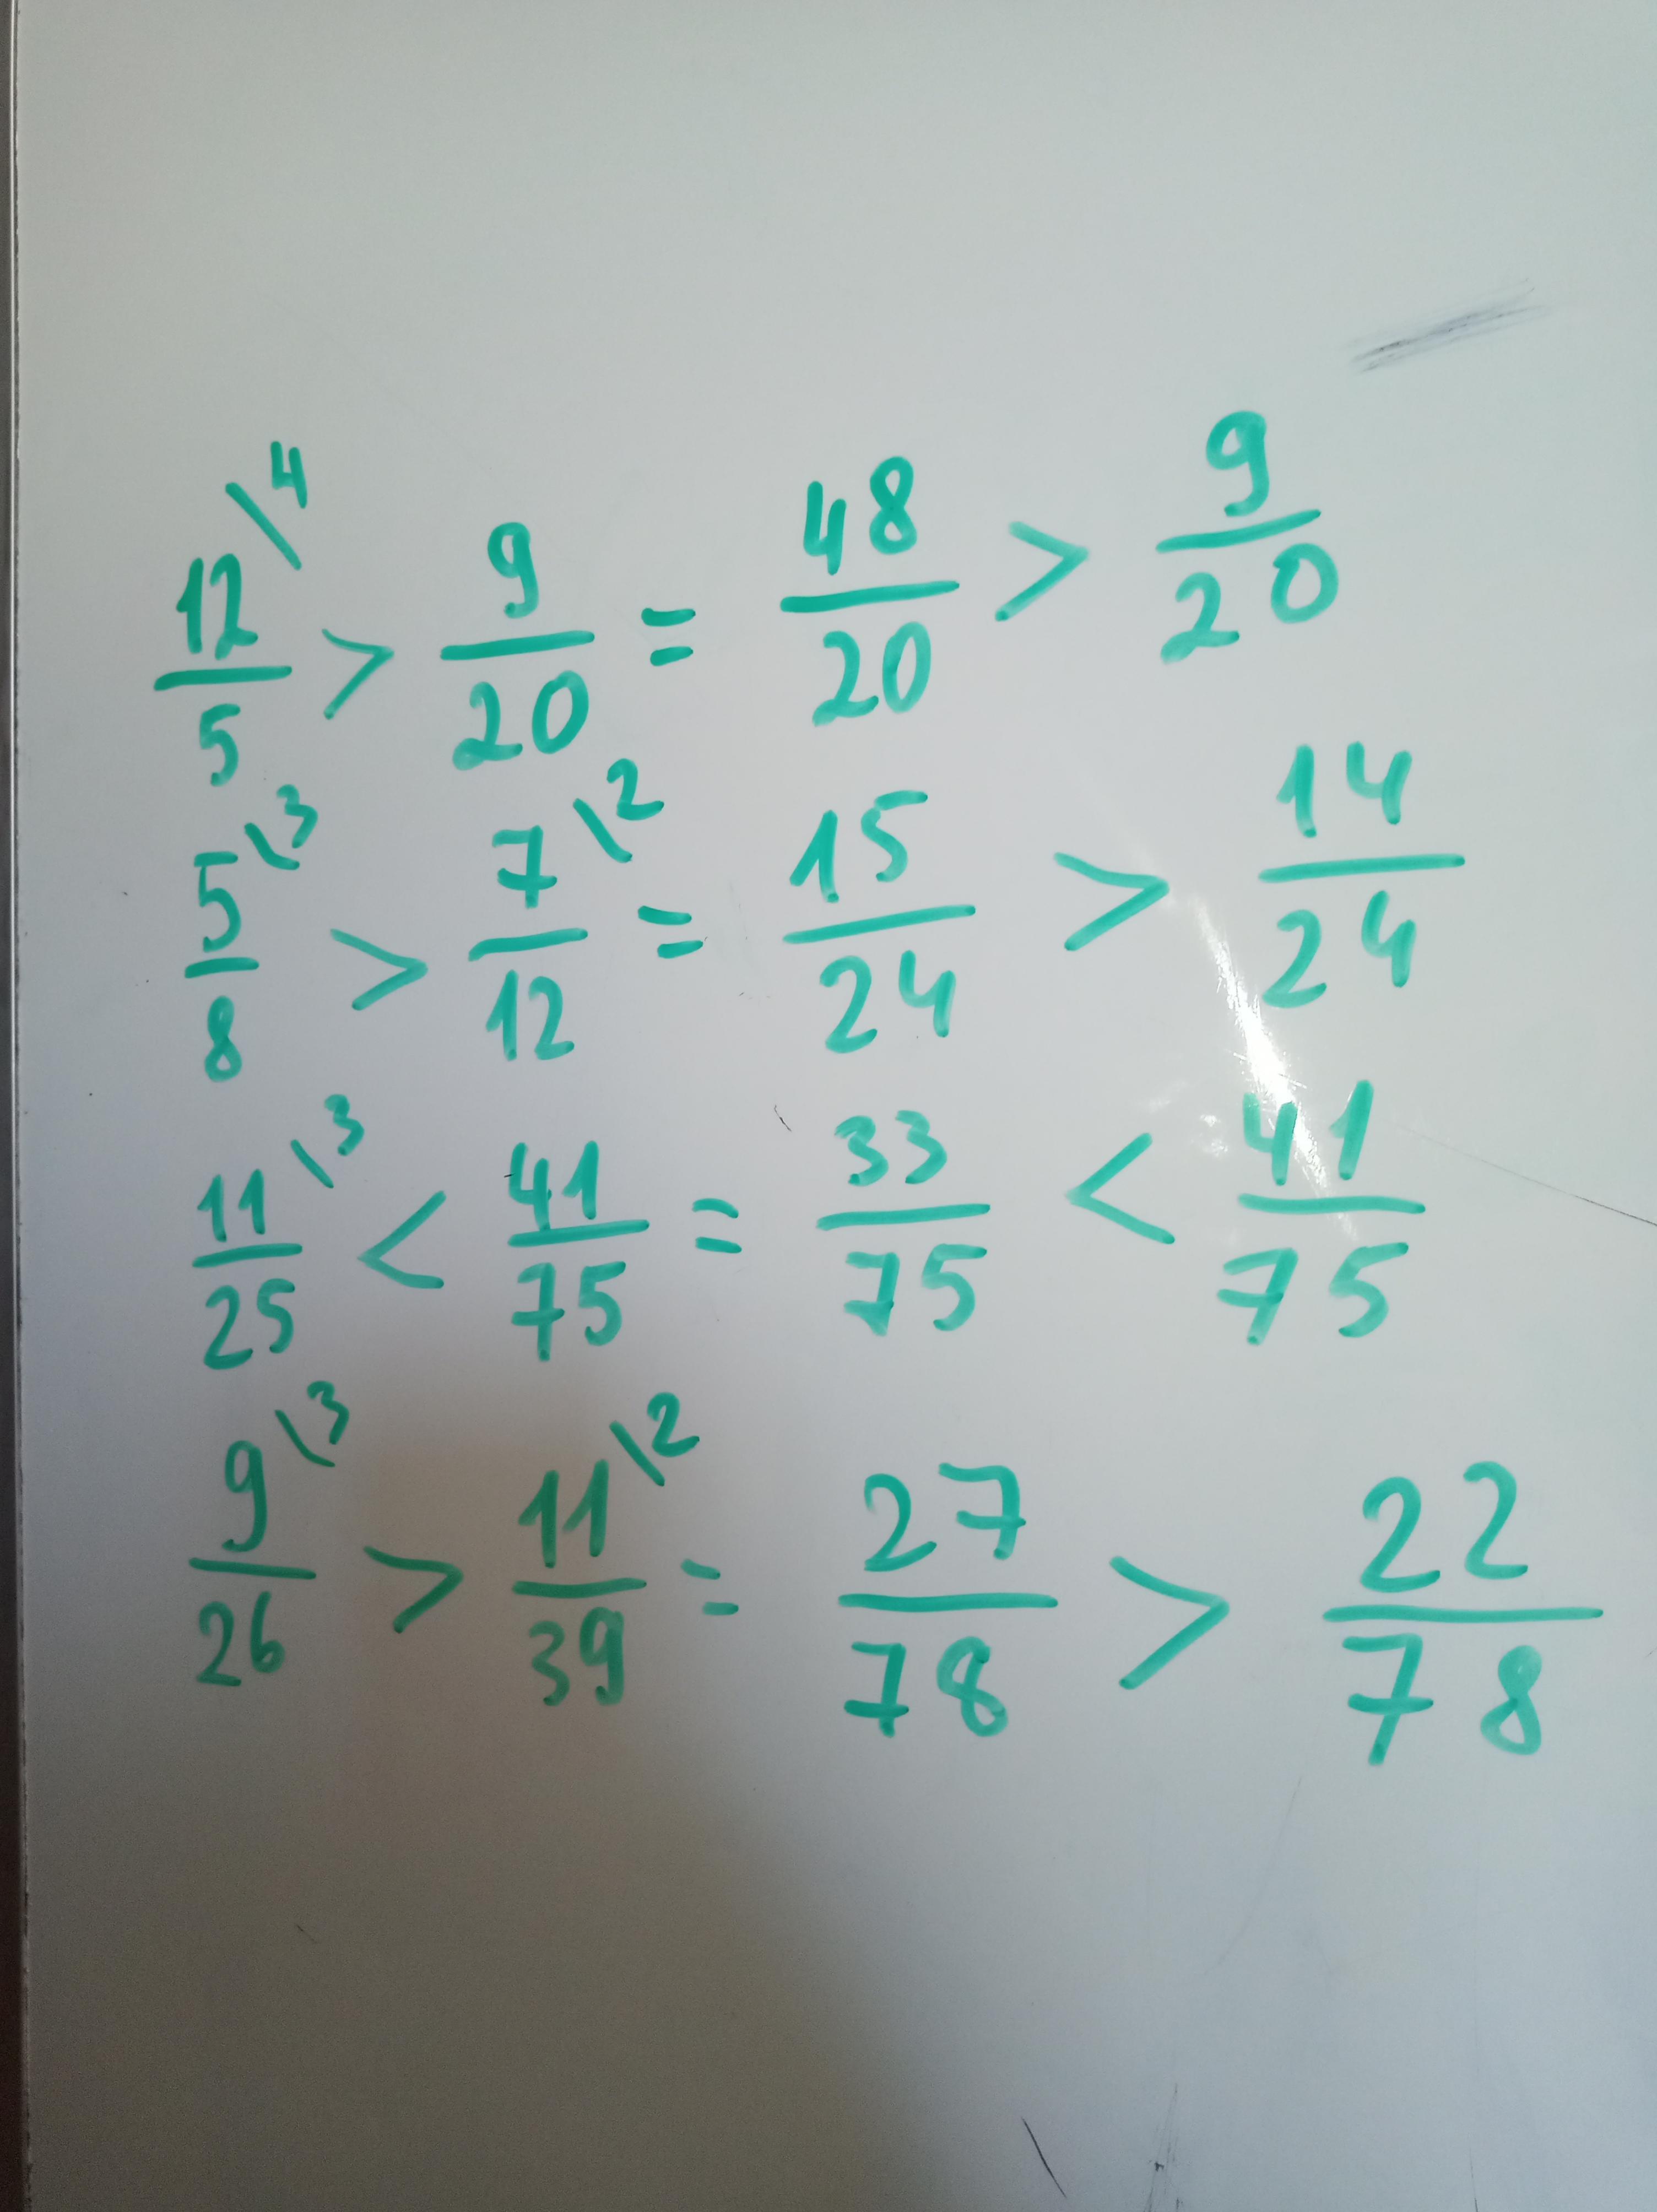 12\4/5 > 9/20 = 48/20 > 9/20
5\3/8 > 7\2/12 = 15/24 > 14/24
11\3/25 < 41/75 = 33/75 < 41/75
9\3/26 > 11\2/39 = 27/78 > 22/78